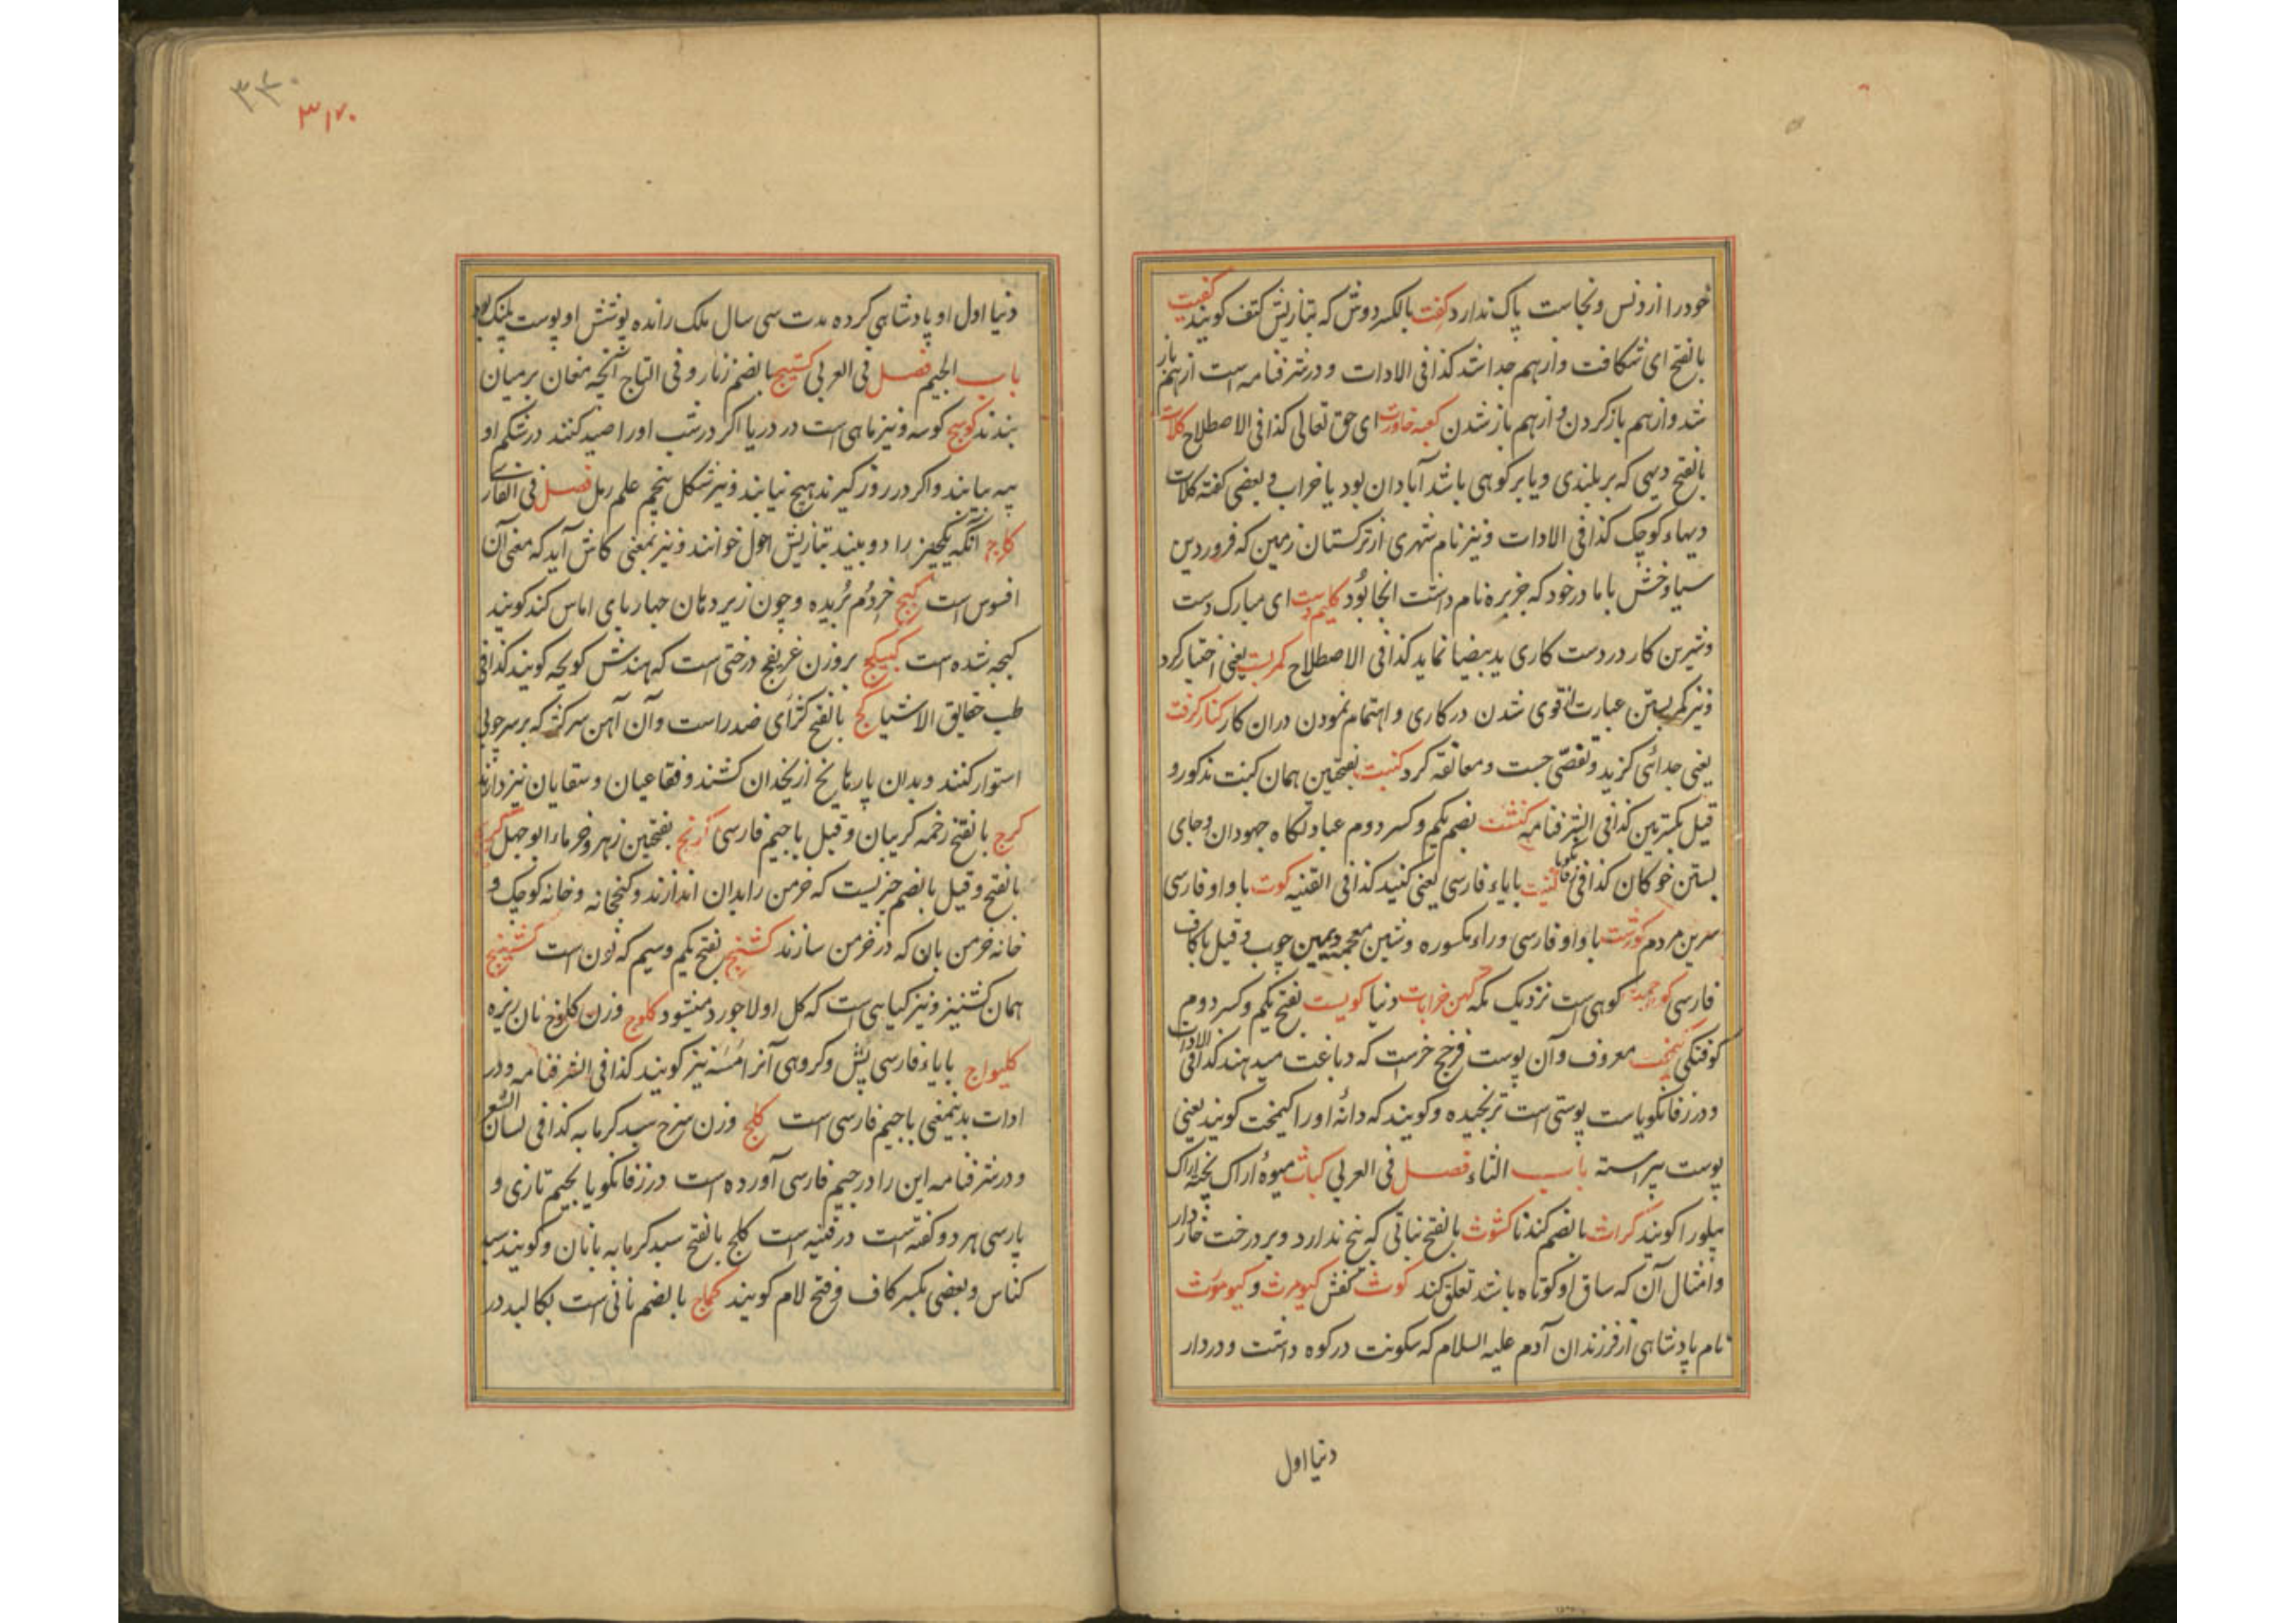 خود را از دنس و نجاست پاک ندارد کفت بالکسر دوش که بتازیش کتف گویند کفیت
بالفتح ای شکافت و از هم جدا شد کذا فی الادات و در شرفنامه است از هم باز
شد و از هم باز کردن و از هم باز شدن کعبه خاوریت ای حق تعالی کذا فی الاصطلاح کلات
بالفتح دیهی که بر بلندی و یا بر کوهی باشد آبادان بود یا خراب و بعضی گفته کلات
دیهاء کوچک کذا فی الادات و نیز نام شهری از ترکستان زمین که فرود بن
سیاوخش با مادر خود که جریره نام داشت آنجا بود کلیم دست ای مبارک دست
و شیرین کار در دست کاری ید بیضا نماید کذا فی الاصطلاح کمر بست یعنی اختیار کرد
و نیز کمر بستن عبارت از قوی شدن در کاری و اهتمام نمودن در آن کار کنار گرفت
یعنی جدائی گزید و تفصّی جست و معانقه کرد کنبت بفتحتین همان کبنت مذکور و
قیل بکسرتین کذا فی الشرفنامه کنشت بضم یکم و کسر دوم عبادتگاه جهودان و جای
بستن خوکان کذا فی زفانگویا کنیت با یاء فارسی یعنی کنید کذا فی القنیه کوت با واو فارسی
سرین مردم کورشت با واو فارسی و راء مکسوره و شین معجمه زمین چوب و قیل با کاف
فارسی کوه رحمت کوهی است نزدیک مکه کهن خرابات دنیا کویست بفتح یکم و کسر دوم
کوفتگی کیمخت معروف و آن پوست فرج خرست که دباغت میدهند کذا فی الادات
و در زفانگویا است پوستی است ترنجیده و گویند که دانه او را کیمخت گویند یعنی
پوست پیراسته باب الثاء فصل فی العربی کباث میوه اراک پخته اراک
پیلو را گویند کراث بالضم گندنا کشوث بالفتح نباتی که بیخ ندارد و بر درخت خار دار
و امثال آن که ساق او کوتاه باشد تعلق کند کوث کفش کیومرث و کیومورث
نام پادشاهی از فرزندان آدم علیه السلام که سکونت در کوه داشت و در دار
دنیا اول
۳۳۰
۳۱۷۰
دنیا اول او پادشاهی کرده مدت سی سال ملک رانده پوشش او پوست پلنک بود
باب الجیم فصل فی العربی کستیج بالضم زنار و فی التاج آنچه مغان بر میان
بندند کوسج کوسه و نیز ماهی است در دریا اگر در شب او را صید کنند در شکم او
پیه بیابند و اگر در روز گیرند هیچ نیابند و نیز شکل پنجم علم رمل فصل فی الفارسی
کاج آنکه یکچیز را دو بیند بتازیش احول خوانند و نیز بمعنی کاش آید که معنی آن
افسوس است کبج خر دُم بُریده و چون زیر دهان چهارپای اماس کند گویند
کبجه شده است کبیکج بر وزن غریفج درختی است که بهندش کویچه گویند کذا فی
طب حقایق الاشیا کج بالفتح کژ ای ضد راست و آن آهن سرکژ که بر سر چوبی
استوار کنند و بدان پارهاء یخ از یخدان کشند و فقاعیان و سقایان نیز دارند
کرج بالفتح زخمه گریبان و قیل با جیم فارسی کرنج بفتحتین زهر و خرماء ابو جهل
بالفتح و قیل بالضم چیزیست که خرمن را بدان اندازند و کنجخانه و خانه کوچک و
خانه خرمن بان که در خرمن سازند کشنج بفتح یکم و سیم که نون است کشنیج
همان کشنیز و نیز گیاهی است که گل او لاجورد میشود کلوج وزن کلوخ نان ریزه
کلیواج با یاء فارسی پش و گروهی آنرا مُسَنه نیز گویند کذا فی الشرفنامه و در
ادات بدینمعنی با جیم فارسی است کلج وزن سرخ سبد گرمابه کذا فی لسان الشعرا
و در شرفنامه این را در جیم فارسی آورده است در زفانگویا بجیم تازی و
پارسی هر دو گفته است در قنیه است کلج بالفتح سبد گرمابه بانان و گویند سبد
کناس و بعضی بکسر کاف و فتح لام گویند کماج بالضم نانی است بکالبد در